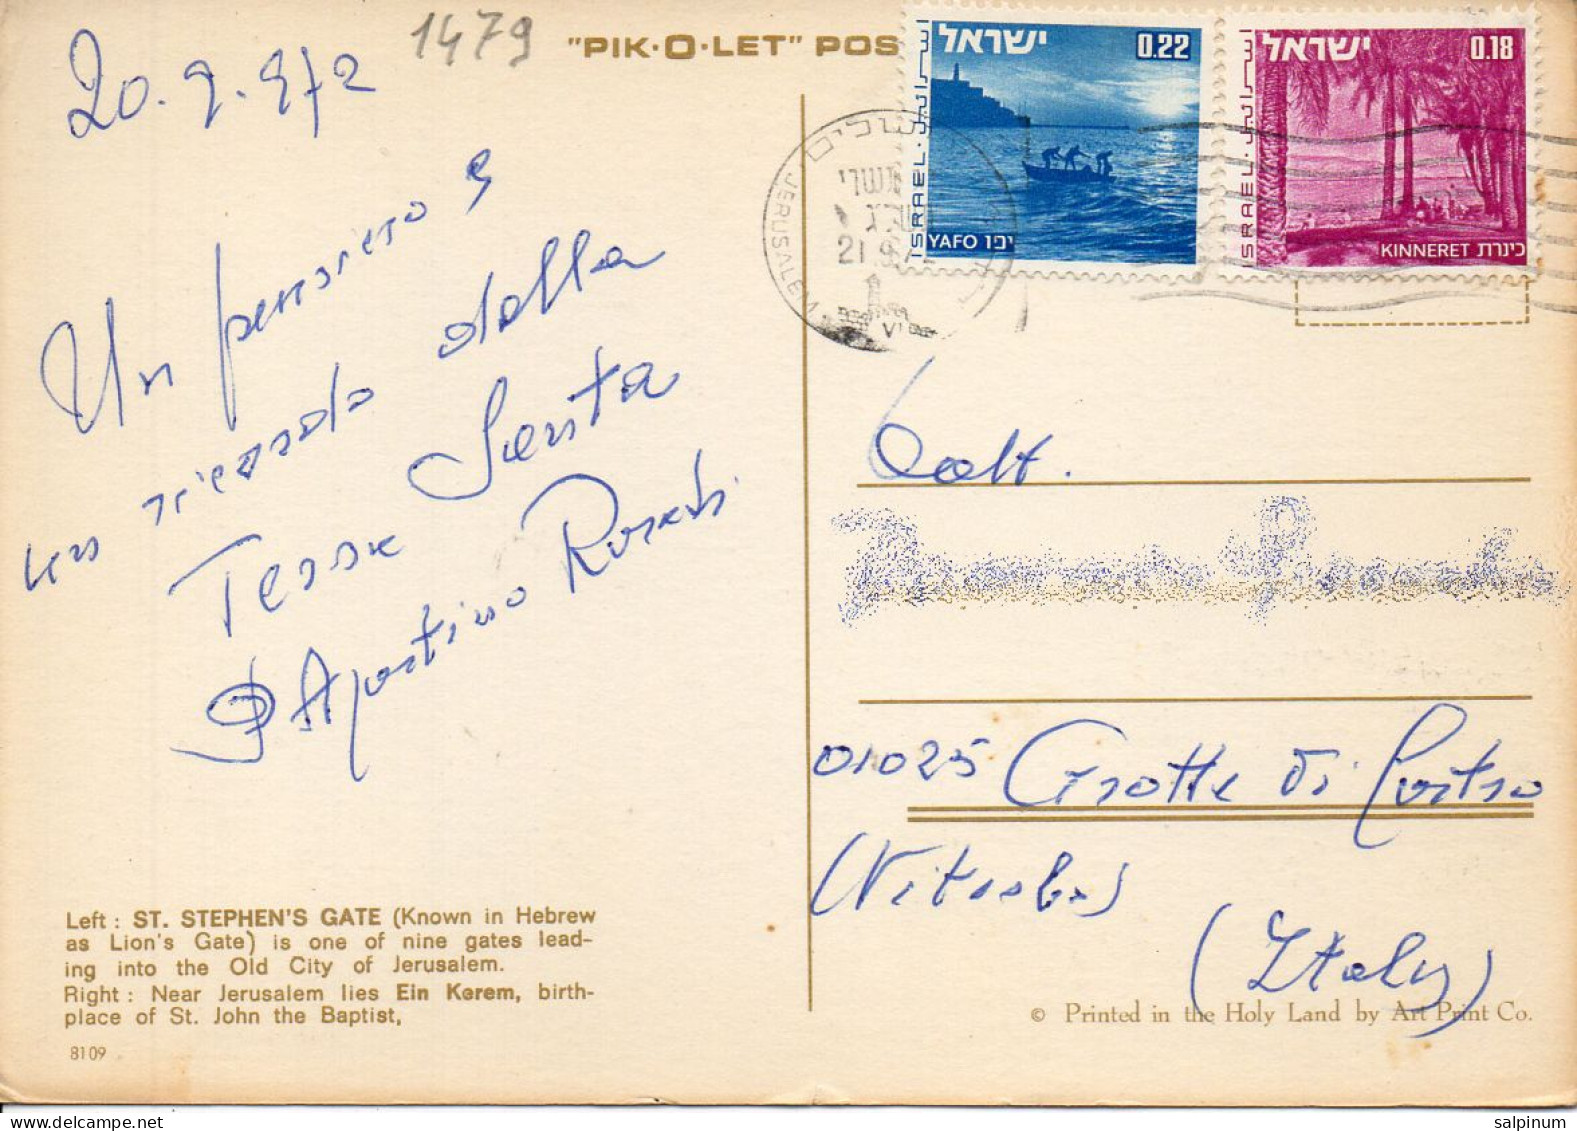 1479
"PIK·O·LET" POS
20.9.972
Un pensiero e
un ricordo della
Terra Santa
D'Agostino
ישראל 0.22
ISRAEL
YAFO יפו
ישראל 0.18
ISRAEL
KINNERET כינרת
JERUSALEM
21.9.72
Dott.
01025 Grotte di Castro
(Viterbo)
(Italy)
Left : ST. STEPHEN'S GATE (Known in Hebrew
as Lion's Gate) is one of nine gates lead-
ing into the Old City of Jerusalem.
Right : Near Jerusalem lies Ein Kerem, birth-
place of St. John the Baptist,
8109
© Printed in the Holy Land by Art Print Co.
salpinum